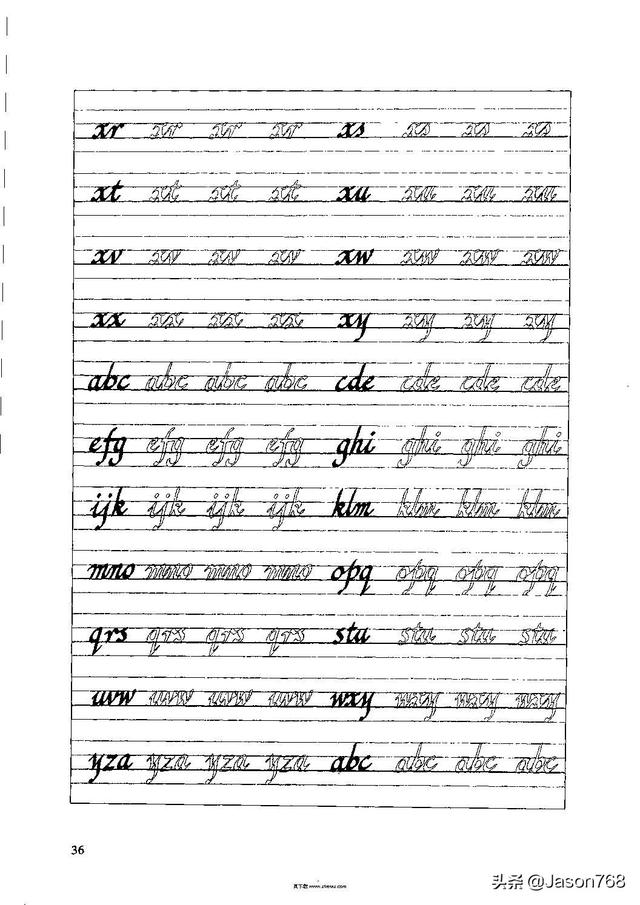 xr xr xr xr xs xs xs xs
xt xt xt xt xu xu xu xu
xv xv xv xv xw xw xw xw
xx xx xx xx xy xy xy xy
abc abc abc abc cde cde cde cde
efg efg efg efg ghi ghi ghi ghi
ijk ijk ijk ijk klm klm klm klm
mno mno mno mno opq opq opq opq
qrs qrs qrs qrs stu stu stu stu
uvw uvw uvw uvw wxy wxy wxy wxy
yza yza yza yza abc abc abc abc
36
头条 @Jason768